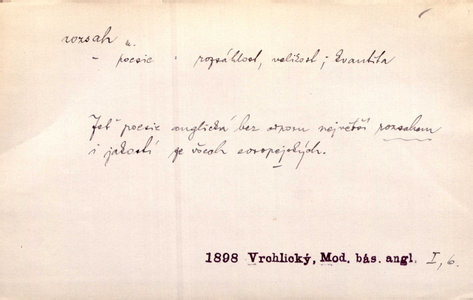 rozsah u.
- poesie : rozsáhlost, velikost; kvantita
Jeť poesie anglická bez odporu největší rozsahem
i jakostí ze všech evropejských.
1898 Vrchlický, Mod. bás. angl. I, 6.